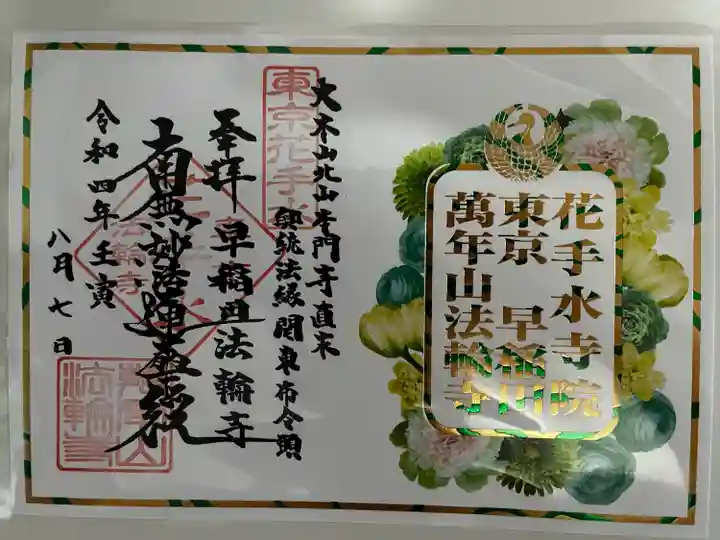 花手水寺院
東京 早稲田
萬年山法輪寺
大本山北山本門寺直末
興統法縁関東布令頭
東京花手水
奉拝 早稲田法輪寺
南無妙法蓮華経
法輪寺
令和四年壬寅
八月七日